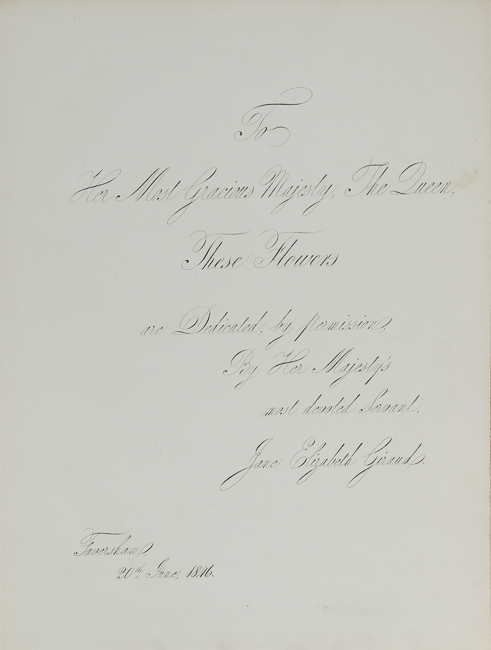 To
Her Most Gracious Majesty, The Queen,
These Flowers
are Dedicated, by permission,
By Her Majesty's
most devoted Servant,
Jane Elizabeth Giraud.
Faversham,
20th June, 1846.